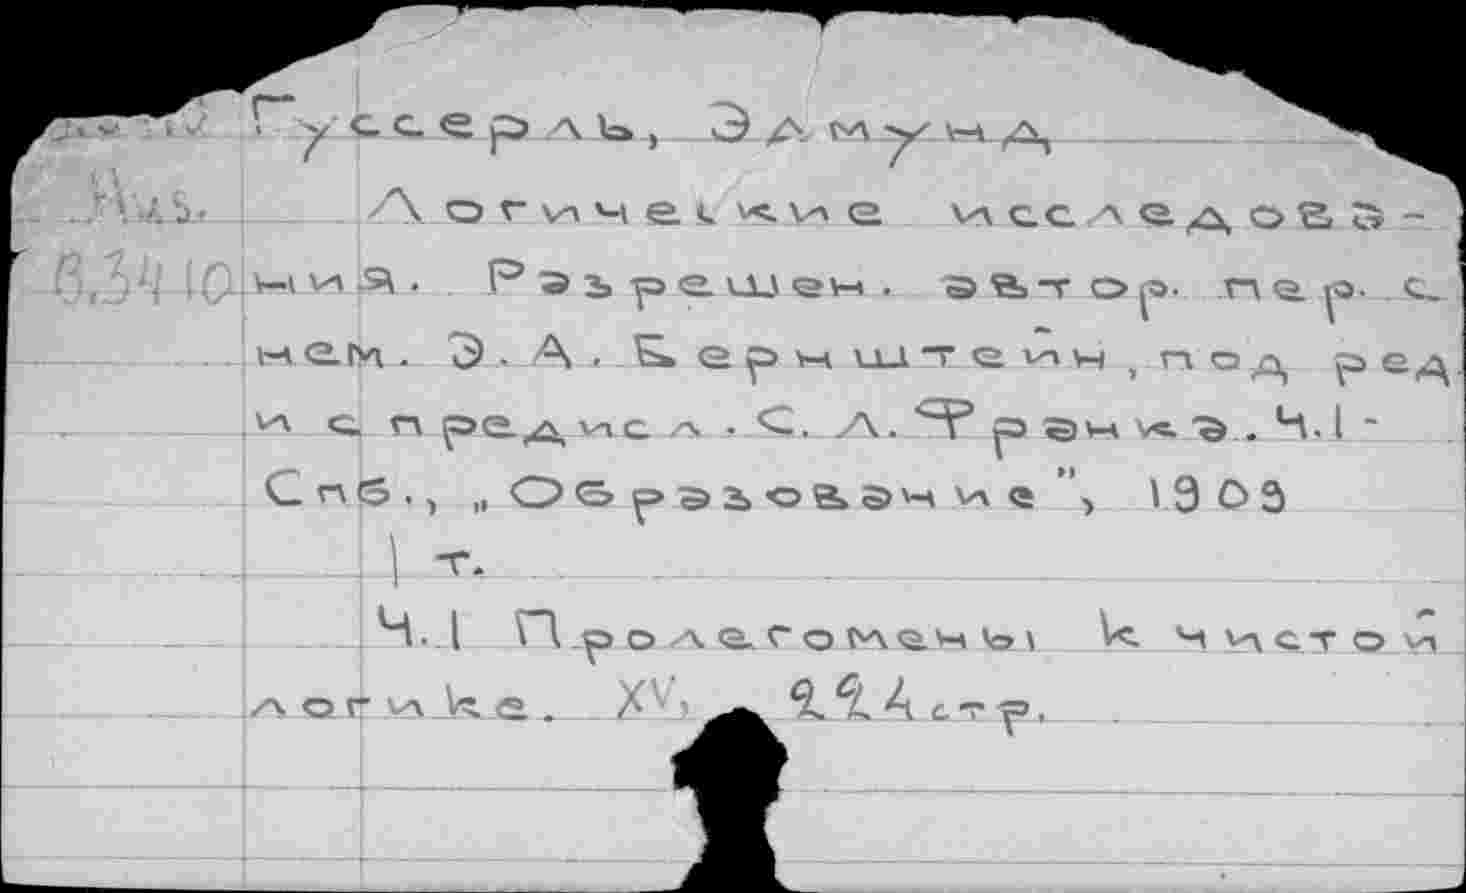 Гуссерль, Эдмунд
Логические исследова-
В.3410 ния. Разрешен. автор. пер. с
нем. Э. А. Бернштейн, под ред.
и с предисл. С. Л. Франка. Ч.1 -
Спб., „Образование", 1909
1 т.
Ч.1 Пролегомены к чистой
логике. XV, 224 стр.